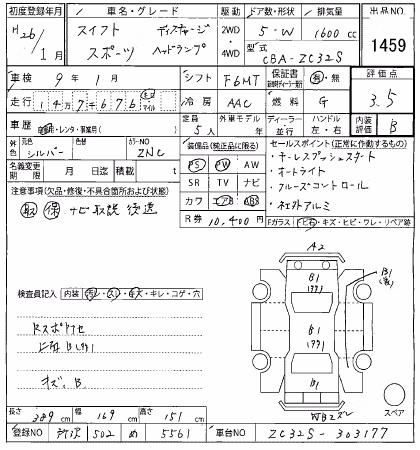 初度登録年月
H 26/1月
車名・グレード
スイフト ディスチャージ
スポーツ ヘッドランプ
駆動
2WD
4WD
ドア数・形状
5・W
排気量
1600 cc
型式
CBA-ZC32S
出品NO.
1459
車検 9年 1月
シフト F6MT
保証書
有・無
評価点
3.5
走行
147,676
マイル
冷房 AAC
燃料 G
内装評価 B
車歴
自家用・レンタ・事業用( )
定員 5人
外車モデル年
ディーラー・並行
ハンドル
左・右
外色
元色
シルバー
色替
カラーNO
ZNC
名義変更期限 月 日
積載 t
装備品(純正品に限る)
PS PW AW
SR TV ナビ
カワ エアB ABS
R券 10,400円
セールスポイント(正常に作動するもの)
・キーレスプッシュスタート
・オートライト
・クルーズコントロール
・社外アルミ
注意事項(欠品・修復・不具合箇所および状態)
取 保 ナビ取説 後送
Fガラス
キズ・ヒビ・ワレ・リペア跡
検査員記入
内装
キレ・コゲ・穴
A2
B1
B1
B1
スペア
長さ 389 cm
幅 169 cm
高さ 151 cm
登録NO 所沢 502 め 5561
車台NO ZC32S-303177